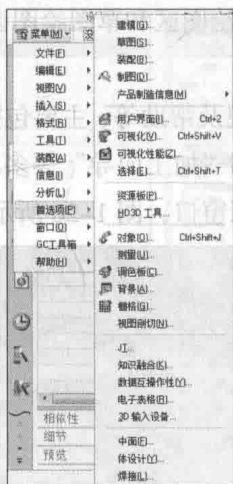 菜单(M)
文件(F)
编辑(E)
视图(V)
插入(S)
格式(R)
工具(T)
装配(A)
信息(I)
分析(L)
首选项(P)
窗口(O)
GC工具箱
帮助(H)
相依性
细节
预览
建模(G)...
草图(S)...
装配(B)...
制图(D)...
产品制造信息(M)
用户界面(I)... Ctrl+2
可视化(V)... Ctrl+Shift+V
可视化性能(Z)...
选择(E)... Ctrl+Shift+T
资源板(P)...
HD3D 工具...
对象(O)... Ctrl+Shift+J
测量(U)...
调色板(C)...
背景(A)...
栅格(G)...
视图剖切(N)...
JT...
知识融合(K)...
数据互操作性(Y)...
电子表格(R)...
3D 输入设备...
中面(F)...
体设计(Y)...
焊接(L)...